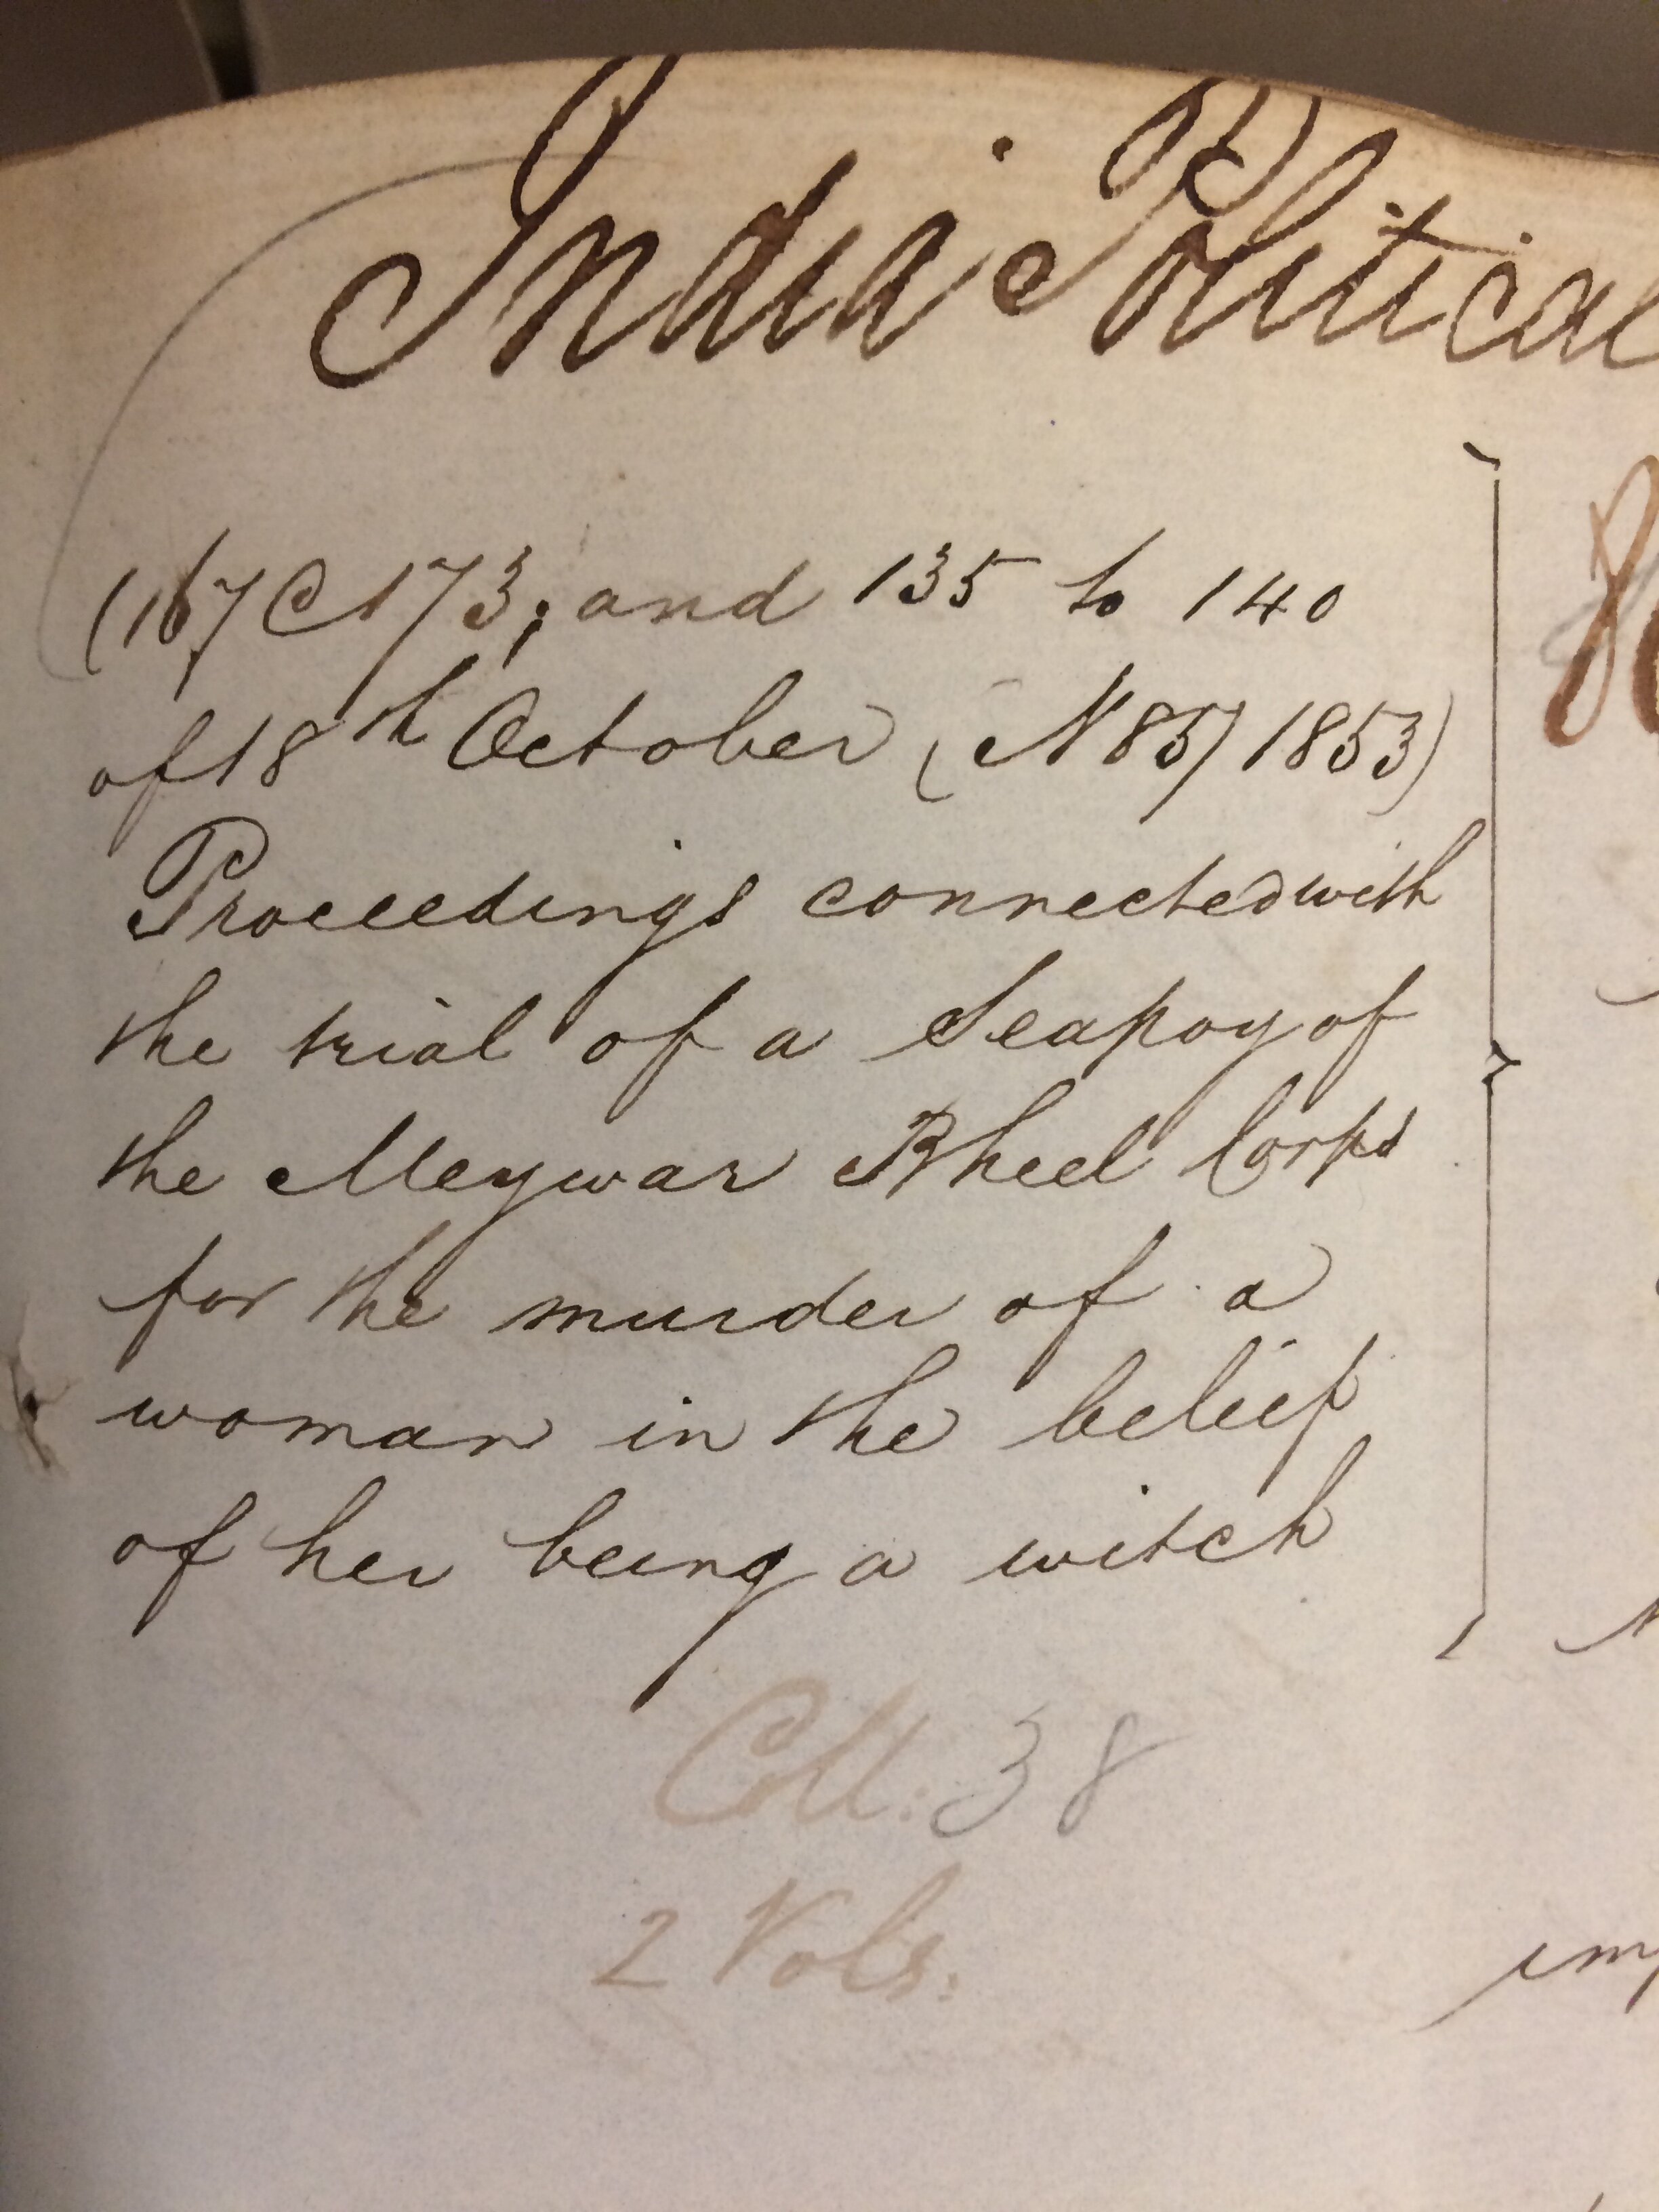 India Political
(167 @ 173; and 135 to 140
of 18th October (N 85) 1853)
Proceedings connected with
the trial of a Seapoy of
the Meywar Bheel Corps
for the murder of a
woman in the belief
of her being a witch
Coll: 38
2 Vols.